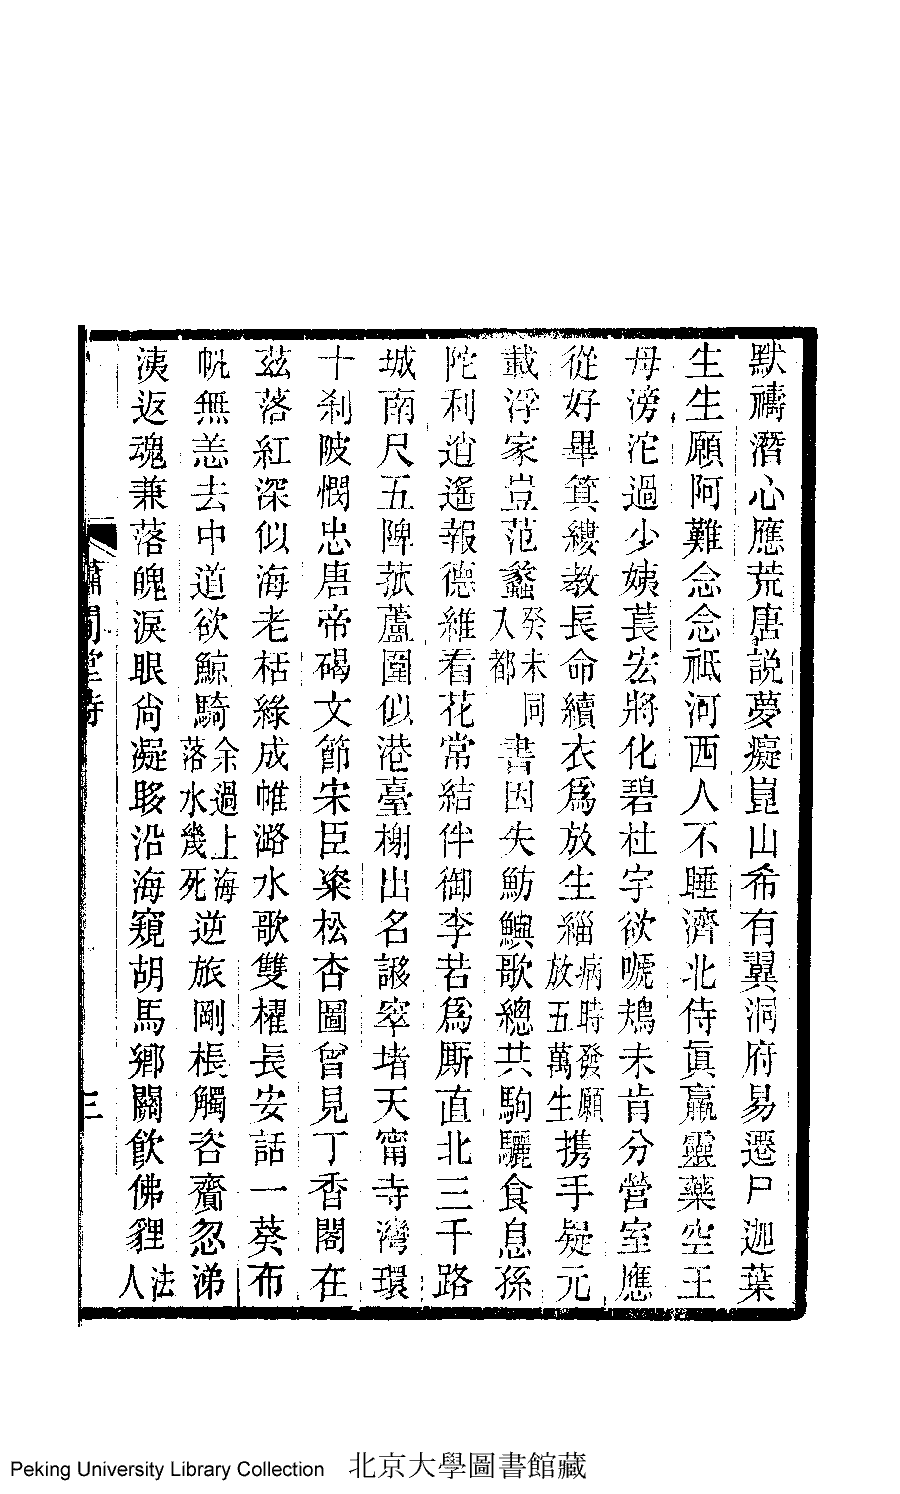 默禱潛心應荒唐說夢癡崑山希有翼洞府易遷尸迦葉
生生願阿難念念祗河西人不睡濟北侍眞羸靈藥空王
母滂沱過少姨萇宏將化碧杜宇欲嗁鳺未肯分營室應
從好畢箕縷敎長命續衣爲放生緇病時發願放五萬生攜手疑元
載浮家豈范蠡癸未同入都書因失魴鱮歌總共駒驪食息孫
陀利逍遙報德維看花常結伴御李若爲厮直北三千路
城南尺五陴菰蘆圍似港臺榭出名謻窣堵天甯寺灣環
十刹陂憫忠唐帝碣文節宋臣粢松杏圖曾見丁香閣在
茲落紅深似海老梧綠成帷潞水歌雙櫂長安話一葵布
帆無恙去中道欲鯨騎余過上海落水幾死逆旅剛棖觸咨齎忽涕
洟返魂兼落魄淚眼尙凝眵沿海窺胡馬鄉關飮佛貍法人
蕭閒堂詩
三
Peking University Library Collection 北京大學圖書館藏